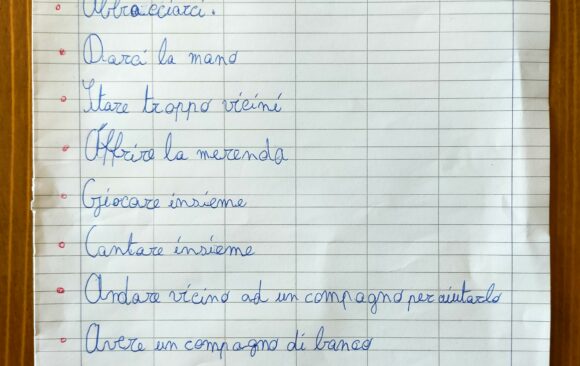 Abbracciarci.
Darci la mano
Stare troppo vicini
Offrire la merenda
Giocare insieme
Cantare insieme
Andare vicino ad un compagno per aiutarlo
Avere un compagno di banco